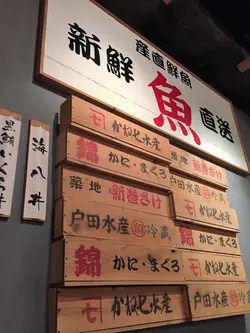 産直鮮魚
新鮮 魚 直送
七 かねせ水産
錦 かに・まぐろ
築地 新巻さけ
新巻さけ
戸田水産 冷蔵
錦 かに・まぐろ
錦 かに・まぐろ
戸田水産 冷蔵
七 かねせ水産
七 かねせ水産
海八丼